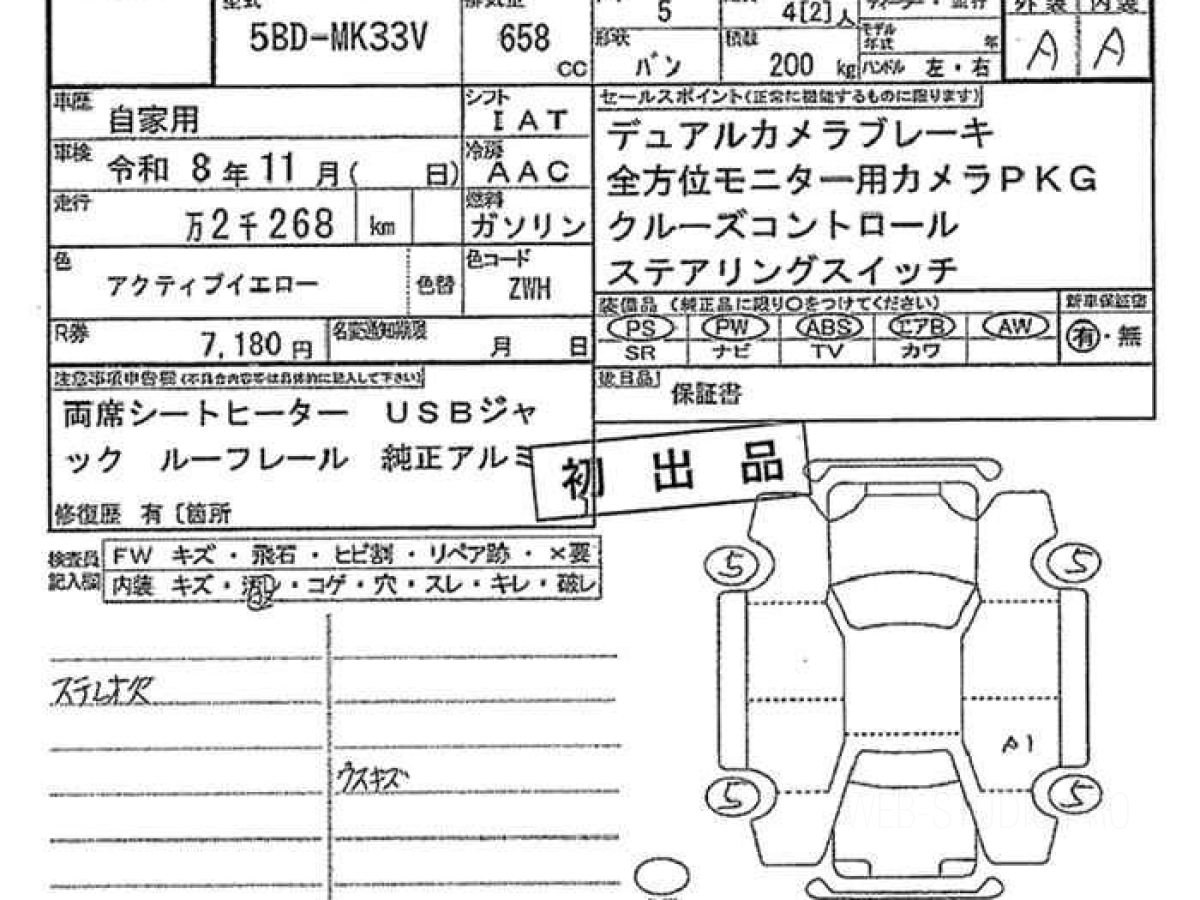 型式 排気量
5BD-MK33V 658 CC
5 4[2]人
形状 バン 積載 200 kg
モデル年式 年
ハンドル 左・右
外装 内装
A A
車歴 自家用
シフト IAT
車検 令和 8年 11月( 日)
冷房 AAC
走行 万2千268 km
燃料 ガソリン
色 アクティブイエロー 色替
色コード ZWH
R券 7,180 円
名変通知期限 月 日
セールスポイント(正常に機能するものに限ります)
デュアルカメラブレーキ
全方位モニター用カメラPKG
クルーズコントロール
ステアリングスイッチ
装備品 (純正品に限り○をつけてください)
PS PW ABS エアB AW
SR ナビ TV カワ
新車保証書
有・無
後日品 保証書
注意事項申告欄(不具合内容等は具体的に記入して下さい)
両席シートヒーター USBジャ
ック ルーフレール 純正アルミ
修復歴 有〔箇所
初出品
検査員記入欄
FW キズ・飛石・ヒビ割・リペア跡・×要
内装 キズ・汚レ・コゲ・穴・スレ・キレ・破レ
ステレオ欠
ウスキズ
5 5
A1
5 5
WEB-STUDIO.PRO